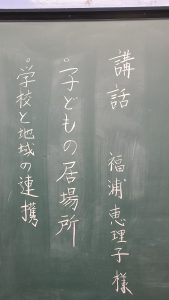 講話　福浦恵理子様
○子どもの居場所
○学校と地域の連携